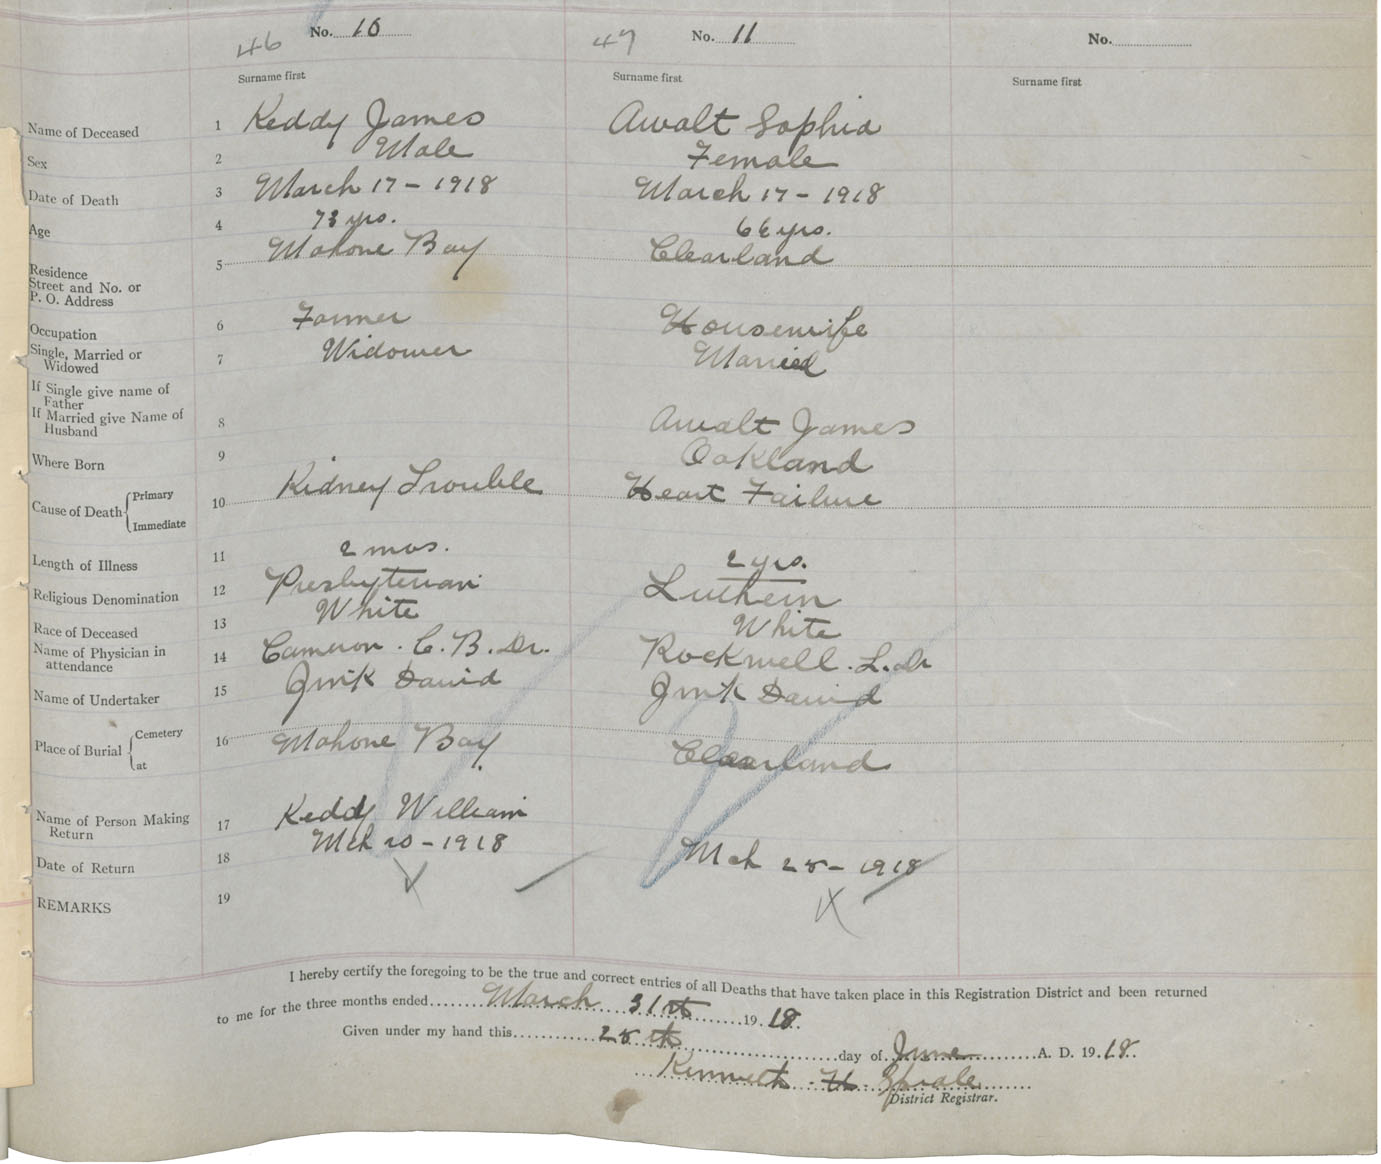 46 No. 10 47 No. 11 No.
Surname first Surname first Surname first
Name of Deceased 1 Keddy James Awalt Sophia
Sex 2 Male Female
Date of Death 3 March 17 - 1918 March 17 - 1918
Age 4 73 yrs. yrs.
Residence
Street and No. or
P. O. Address 5 Mahone Bay Clearland
Occupation 6 Farmer Housewife
Single, Married or
Widowed 7 Widower Married
If Single give name of
Father
If Married give Name of
Husband 8 Awalt James
Where Born 9 Oakland
Cause of Death { Primary
Immediate 10 Kidney Trouble Heart Failure
Length of Illness 11 2 mos. 2 yrs.
Religious Denomination 12 Presbyterian Luthern
Race of Deceased 13 White White
Name of Physician in
attendance 14 Cameron . C. B. Dr. Rockwell . L. Dr
Name of Undertaker 15 David David
Place of Burial { Cemetery
at 16 Mahone Bay Clearland
Name of Person Making
Return 17 Keddy William
Date of Return 18 Mch 20 - 1918 Mch 28 - 1918
REMARKS 19
I hereby certify the foregoing to be the true and correct entries of all Deaths that have taken place in this Registration District and been returned
to me for the three months ended March 31st 19 18.
Given under my hand this 28 th day of June A. D. 19 18.
Kenneth H
District Registrar.